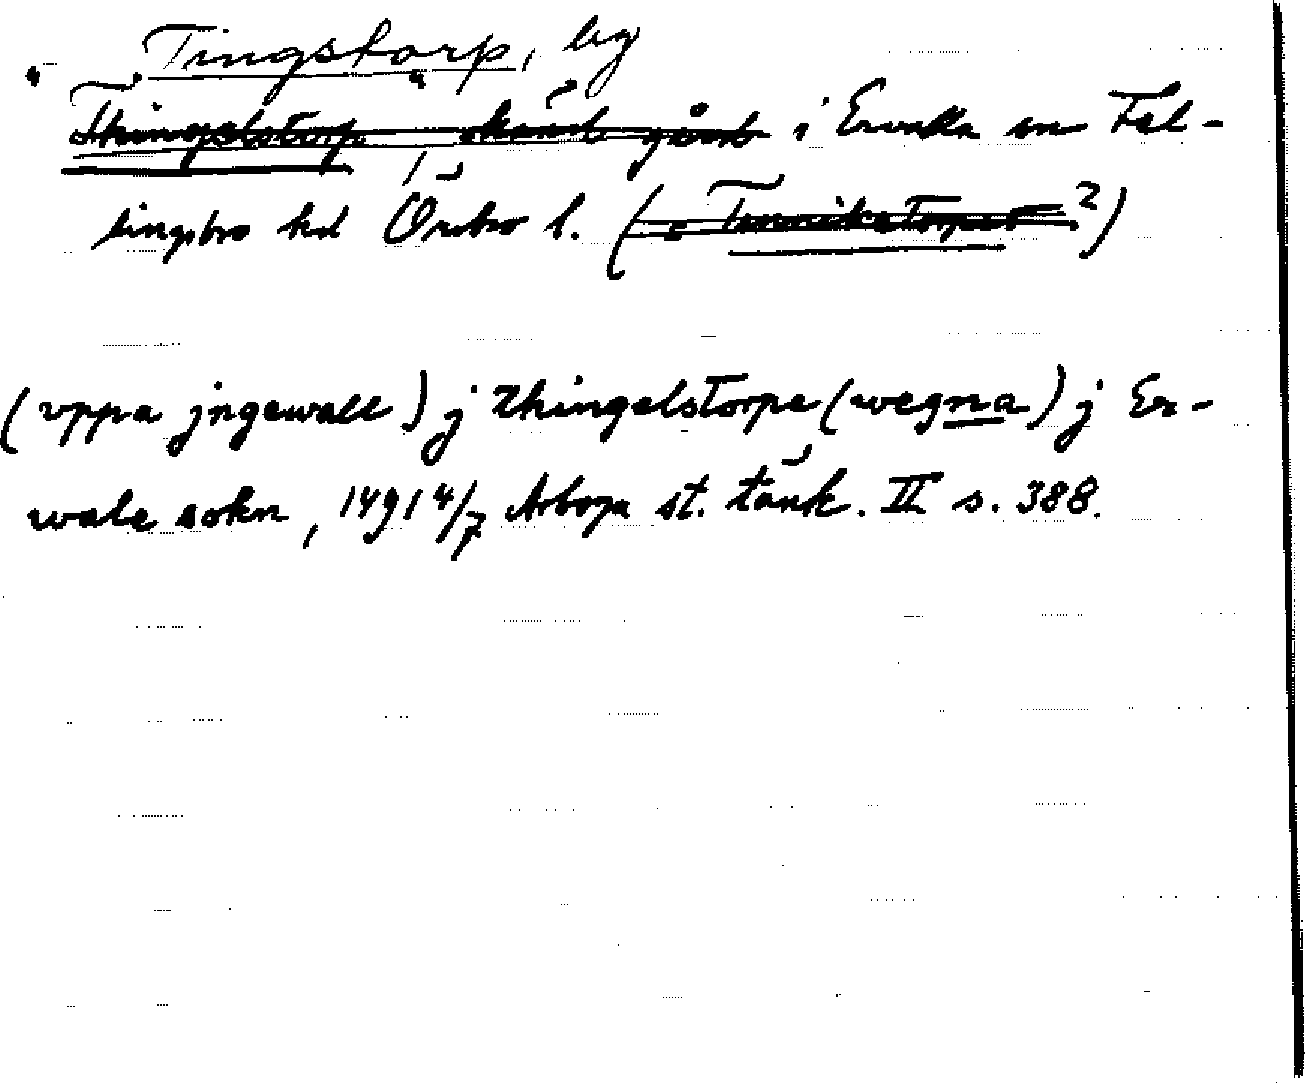 Tingstorp, by
"Thingelstorp", okänd gård i Ervalla sn Fel-
lingsbro hd Örebro l. (= Tunnikatorpet ?)
(vppa jngewall) j thingelstorpe (wegna) j Er-
wale sokn, 1491 4/7 Arboga st. tänk. II s. 388.